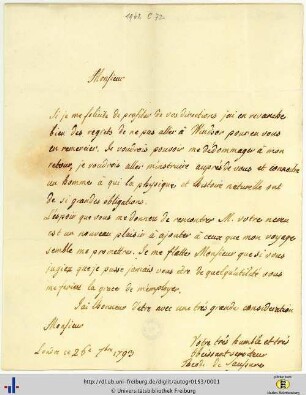 Monsieur
Si je me felicite de profiter de vos directions j'ai en revanche
bien des regrets de ne pas aller à Windsor pour en vous
en remercier. Je voudrois pouvoir me dédommager à mon
retour, je voudrois aller m'instruire auprès de vous et connoitre
un homme à qui la physique et histoire naturelle ont
de si grandes obligations.
L'espoir que vous me donnez de rencontrer M. votre neveu
est un nouveau plaisir à ajouter à ceux que mon voyage
semble me promettre. Je me flatte Monsieur que si vous
jugiez que je puisse jamais vous être de quelqu'utilité vous
me feriez la grace de m'employer.
J'ai l'honneur d'etre avec une très grande consideration
Monsieur
Votre très humble et très
obeissant serviteur
ce 26e 7bre 1793
Theod: de Saussure
http://dl.ub.uni-freiburg.de/diglit/autogr0153/0001
© Universitätsbibliothek Freiburg